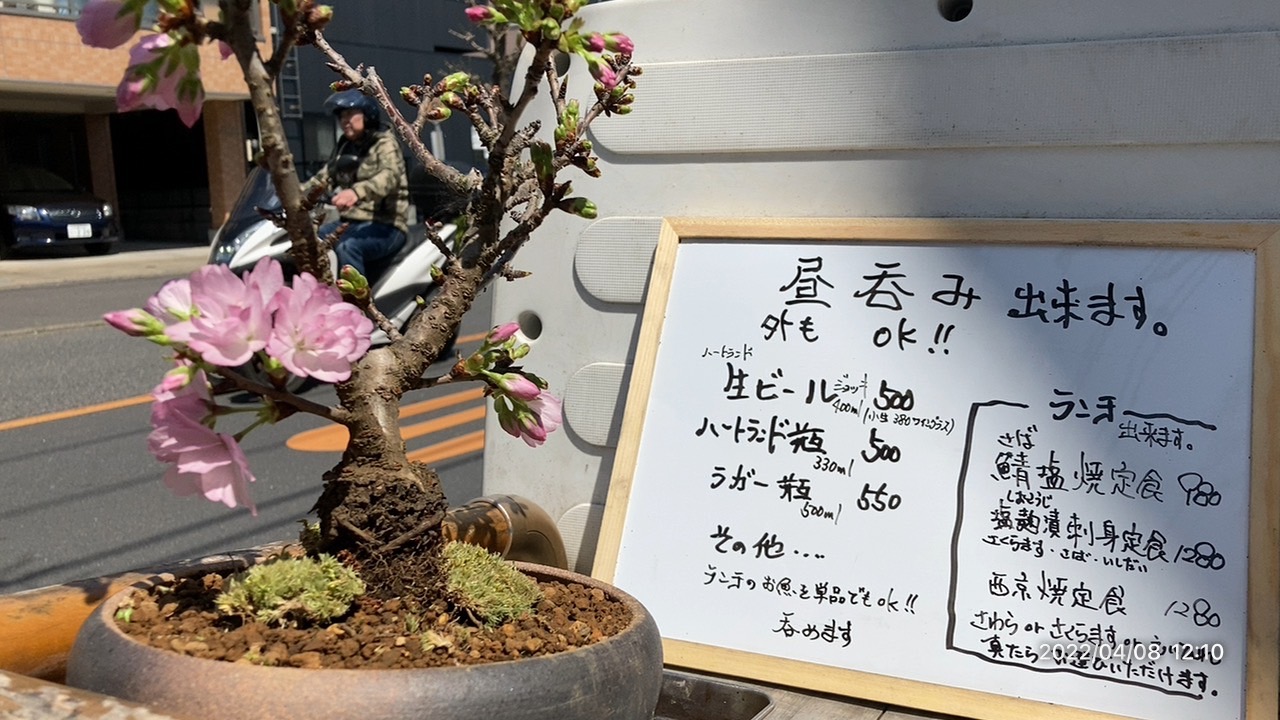 昼呑み出来ます。
外も OK!!
ハートランド
生ビール ジョッキ 400ml 500
(小生 380 ワイングラス)
ハートランド瓶 330ml 500
ラガー瓶 500ml 550
その他‥‥
ランチのお魚を単品でもOK!!
呑めます
ランチ
出来ます。
さば
鯖塩焼定食 980
しおこうじ
塩麹漬刺身定食 1280
さくらます・さば・いしだい
西京焼定食 1280
さわら or さくらます or
真たら お選びいただけます。
2022/04/08 12:10